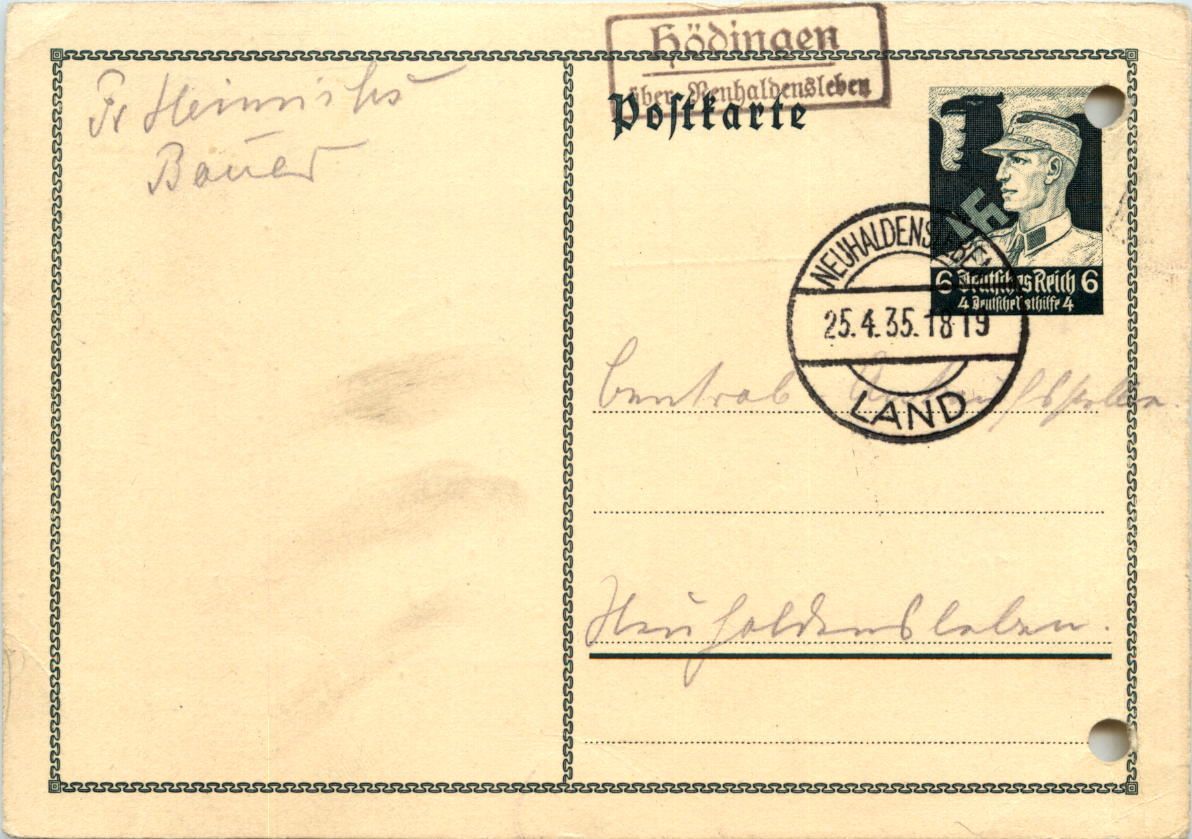 Hödingen
über Neuhaldensleben
Postkarte
Fr Heinrichs
Bauer
6 Deutsches Reich 6
4 Deutsche Nothilfe 4
NEUHALDENSLEBEN
25.4.35.18-19
LAND
Central
Neuhaldensleben.